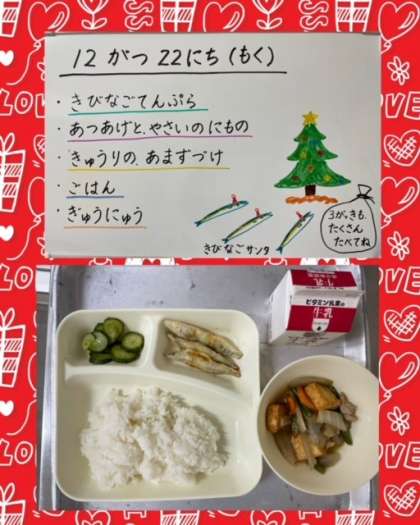 12 がつ 22にち (もく)
・きびなごてんぷら
・あつあげと、やさいのにもの
・きゅうりの、あまずづけ
・ごはん
・ぎゅうにゅう
きびなごサンタ
3がっきも、
たくさん
たべてね
ビタミン乳業の
牛乳
LOVE
LOVE